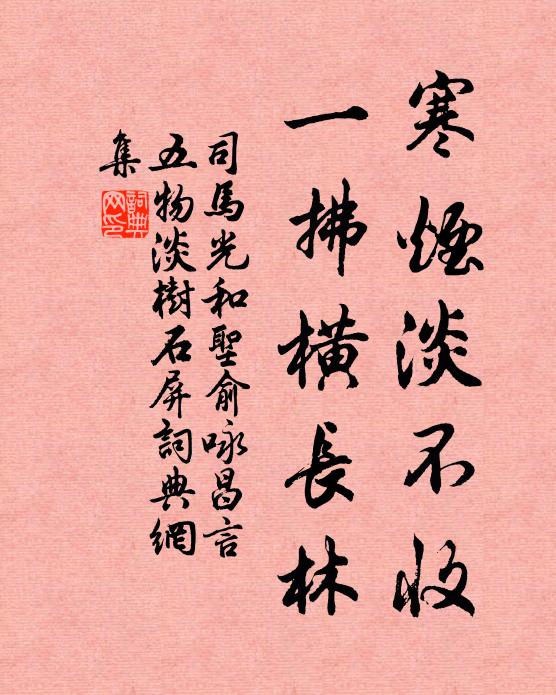 寒煙淡不收
一拂橫長林
司馬光和聖俞咏昌言
五物淡樹石屏詞典網
集
詞典
网印